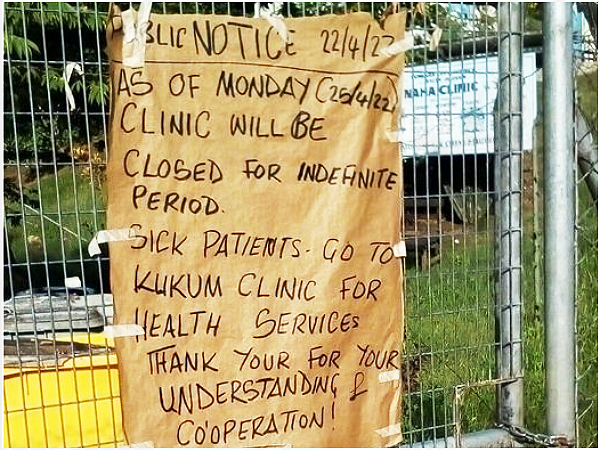 PUBLIC NOTICE 22/4/22
AS OF MONDAY (25/4/22)
CLINIC WILL BE
CLOSED FOR INDEFINITE
PERIOD.
SICK PATIENTS. GO TO
KUKUM CLINIC FOR
HEALTH SERVICES
THANK YOUR FOR YOUR
UNDERSTANDING &
CO'OPERATION!
NAHA CLINIC